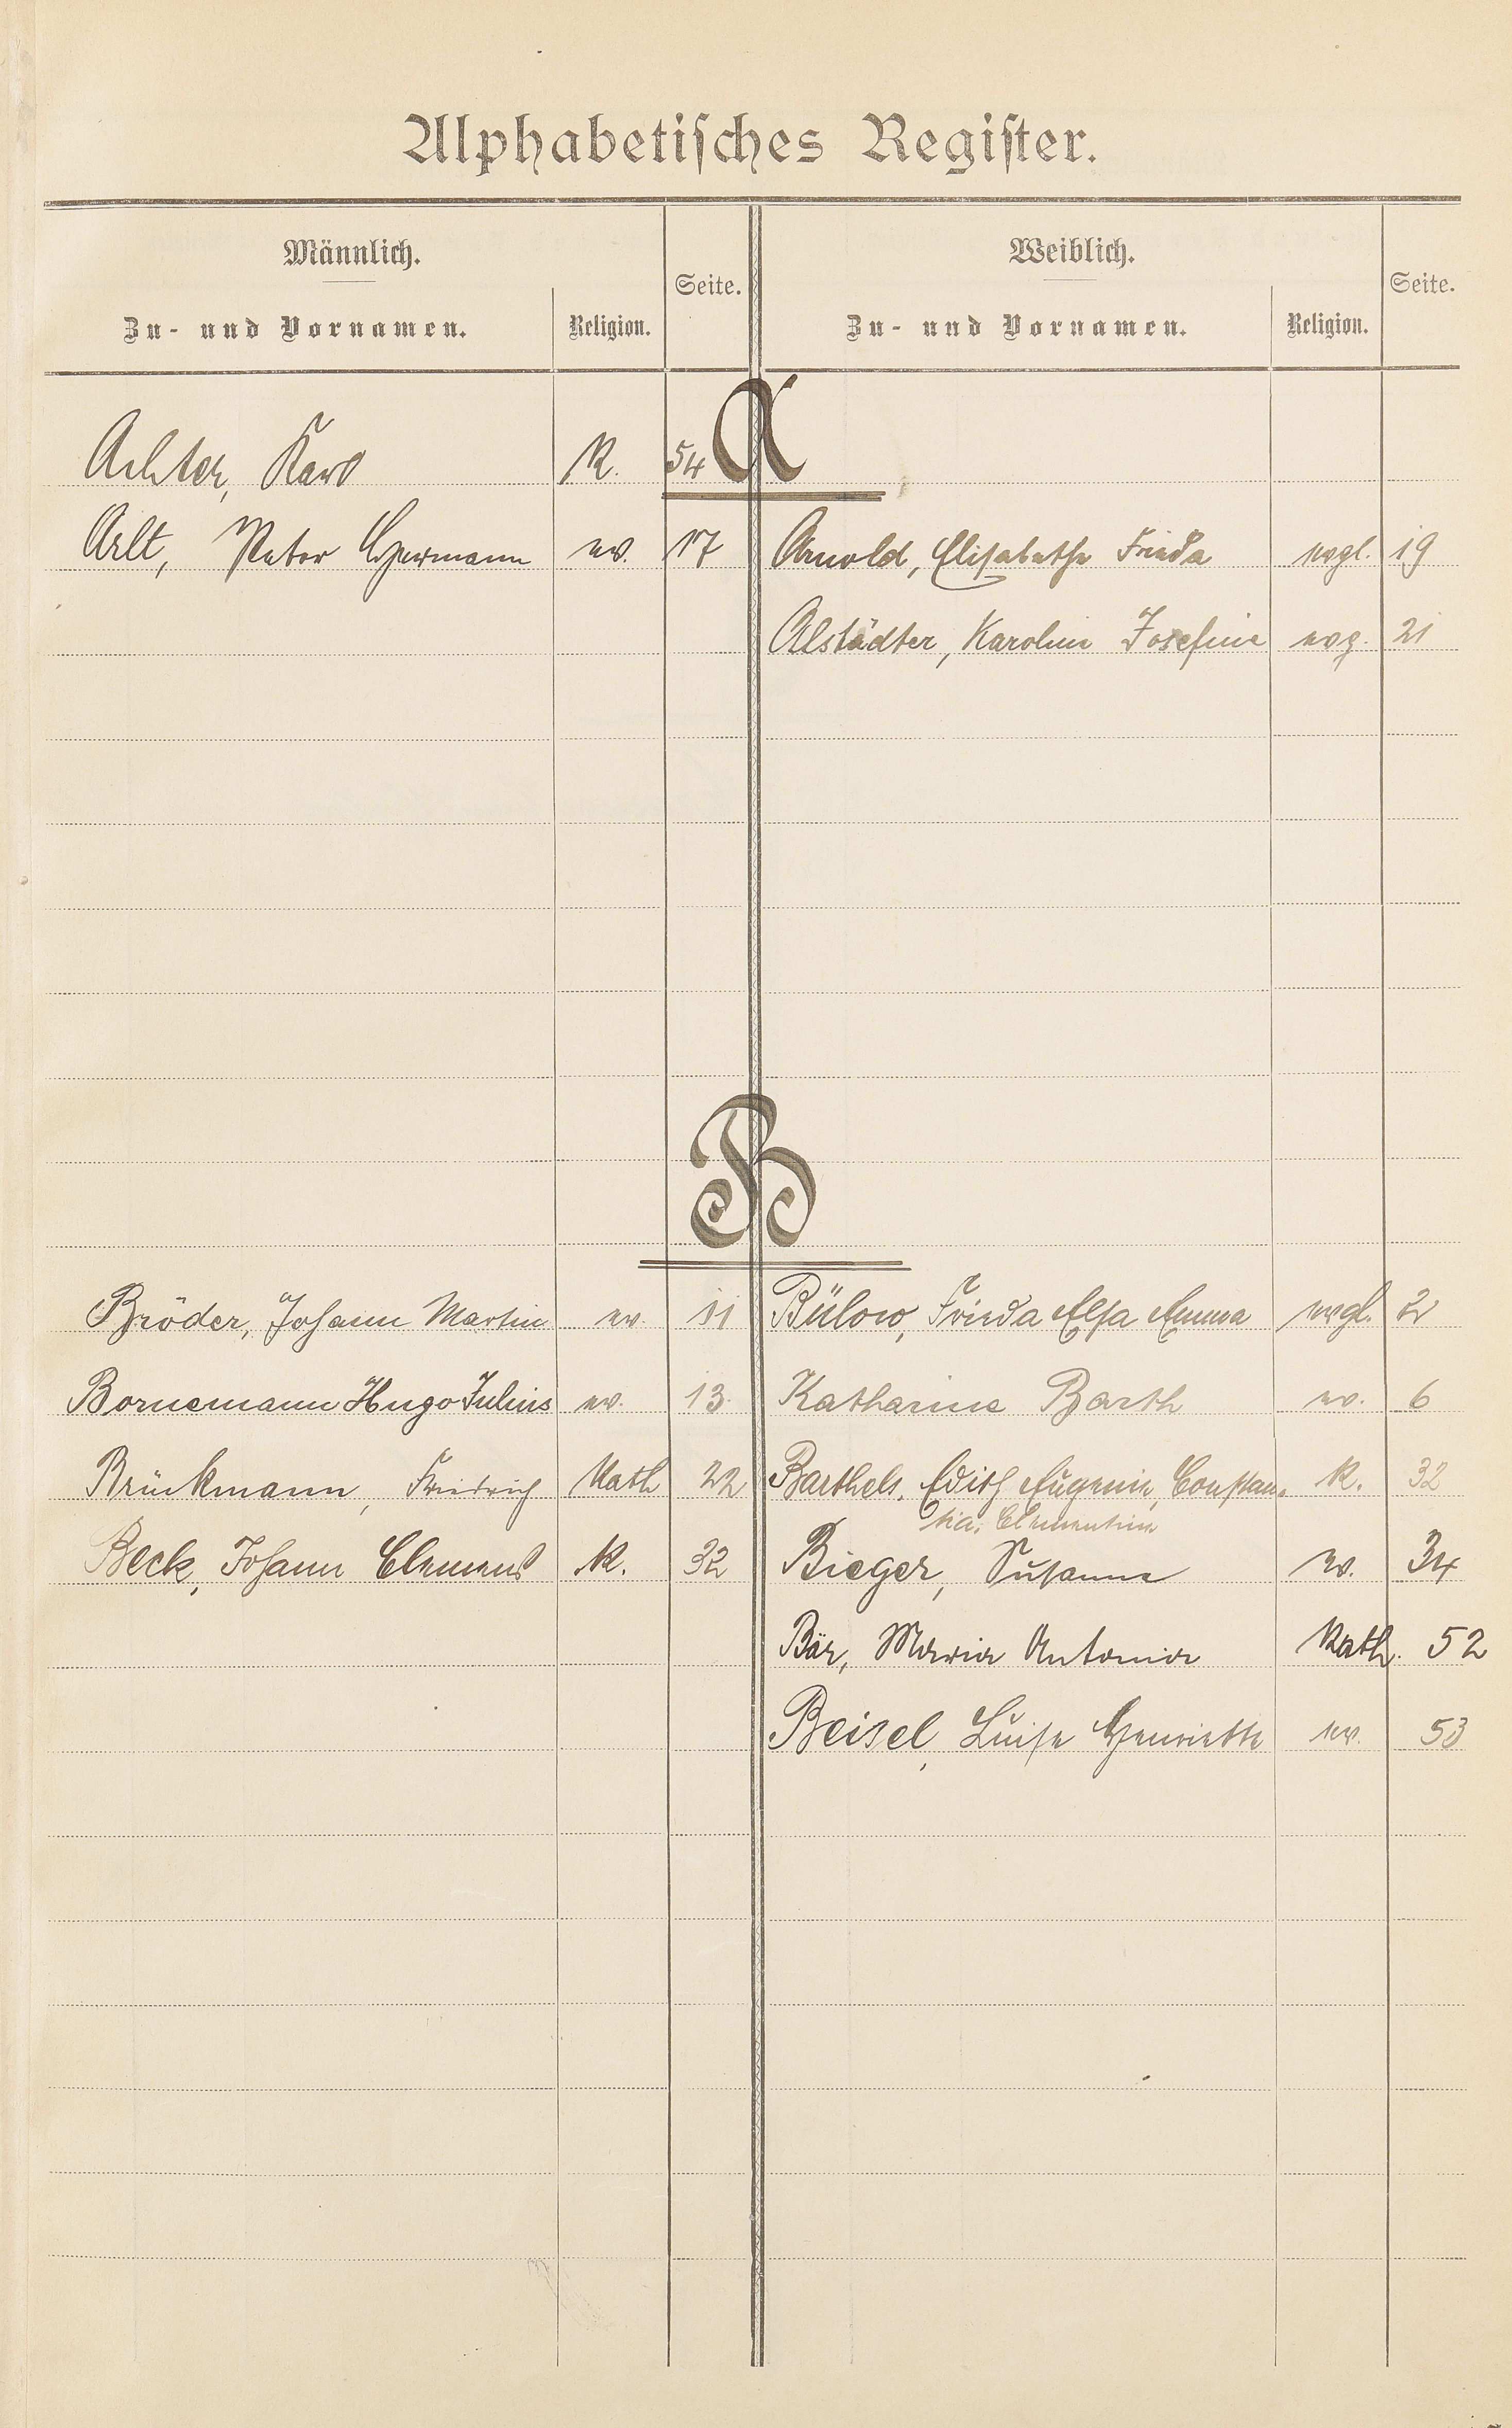 Alphabetisches Register.
Männlich. Seite. Weiblich. Seite.
Zu- und Vornamen. Religion. Zu- und Vornamen. Religion.
A
Achter, Karl K. 54
Arlt, Peter Hermann ev. 17 Arnold, Elisabethe Frieda evgl. 19
Alstädter, Karolin Josefine evg. 21
B
Bröder, Johann Martin ev. 11 Bülow, Frieda Elsa Emma evgl. 2
Bornemann Hugo Julius ev. 13. Katharine Barth ev. 6
Brückmann, Friedrich Kath 22 Barthels, Edith Eugenie, Constan- K. 32
tia, Clementine
Beck, Johann Clemens K. 32 Bieger, Susanne ev. 34
Bär, Maria Antonia Kath. 52
Beisel, Luise Henriette ev. 53